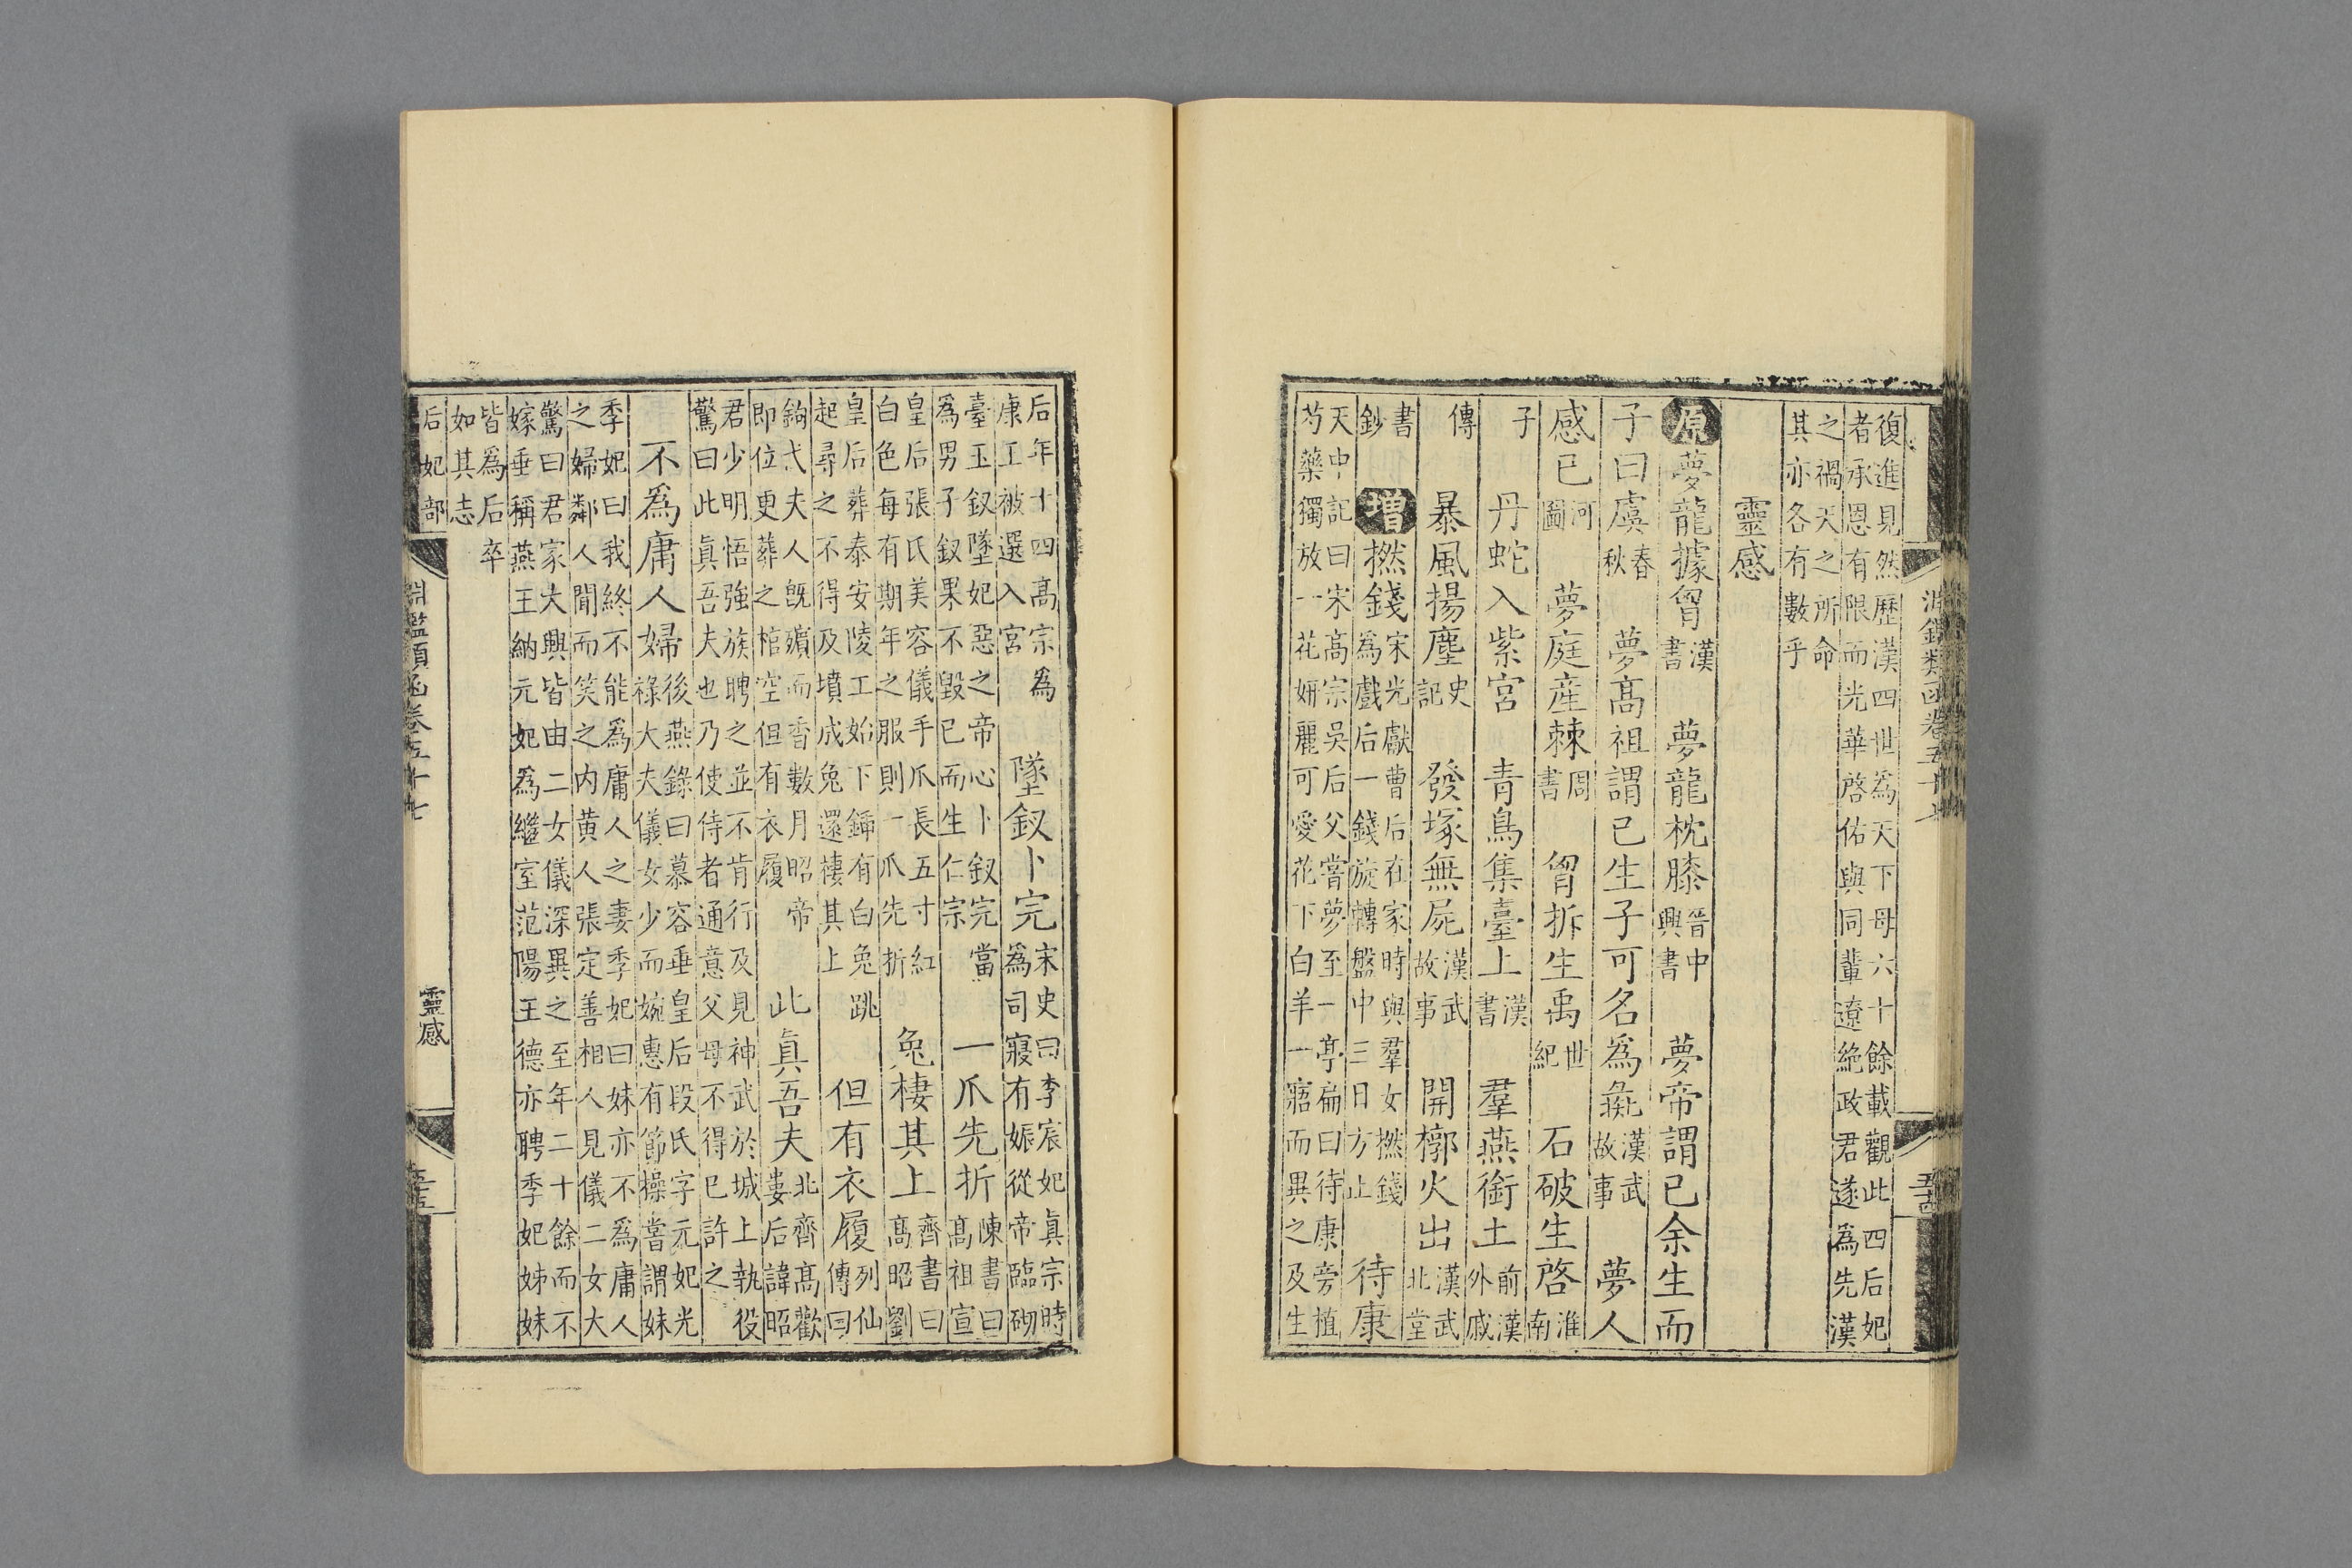 淵鑑類函卷五十七
復進見然歷漢四世爲天下母六十餘載觀此四后妃
者承恩有限而光華啓佑與同輩遼絶政君遂爲先漢
之禍天之所命
其亦各有數乎
靈感
原夢龍據胷漢書 夢龍枕膝晉中興書 夢帝謂已余生而
子曰虞春秋 夢高祖謂已生子可名爲彘漢武故事 夢人
感已河圖 夢庭産棘周書 胷拆生禹世紀 石破生啓淮南
子 丹蛇入紫宮 青鳥集臺上漢書 羣燕銜土前漢外戚
傳 暴風揚塵史記 發塚無屍漢武故事 開槨火出漢武北堂
書鈔 增撚錢宋光獻曹后在家時與羣女撚錢爲戲后一錢旋轉盤中三日方止 待康
天中記曰宋高宗吳后父嘗夢至一亭扁曰待康旁植
芍藥獨放一花妍麗可愛花下白羊一寤而異之及生
后年十四高宗爲
康工被選入宮
墜釵卜完宋史曰李宸妃眞宗時爲司寢有娠從帝臨砌
臺玉釵墜妃惡之帝心卜釵完當
爲男子釵果不毀已而生仁宗
一爪先折陳書曰高祖宣
皇后張氏美容儀手爪長五寸紅
白色每有期年之服則一爪先折
兔棲其上齊書曰高昭劉
皇后葬泰安陵工始下鍤有白兔跳
起尋之不得及墳成兔還棲其上
但有衣履列仙傳曰
鉤弋夫人旣殯而香數月昭帝
即位更葬之棺空但有衣履
此眞吾夫北齊高歡婁后諱昭
君少明悟強族聘之並不肯行及見神武於城上執役
驚曰此眞吾夫也乃使侍者通意父母不得已許之
不爲庸人婦後燕錄曰慕容垂皇后段氏字元妃光祿大夫儀女少而婉惠有節操嘗謂妹
季妃曰我終不能爲庸人之妻季妃曰妹亦不爲庸人
之婦鄰人聞而笑之内黄人張定善相人見儀二女大
驚曰君家大興皆由二女儀深異之至年二十餘而不
嫁垂稱燕王納元妃爲繼室范陽王德亦聘季妃姊妹
皆爲后卒
如其志
后妃部
淵鑑類函卷五十七
靈感